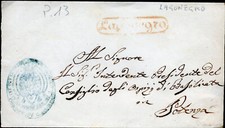 P. 13
LAGONEGRO
Al Signore
Il Sig. Intendente Presidente del
Consiglio degli Ospizj di Basilicata
in
Potenza